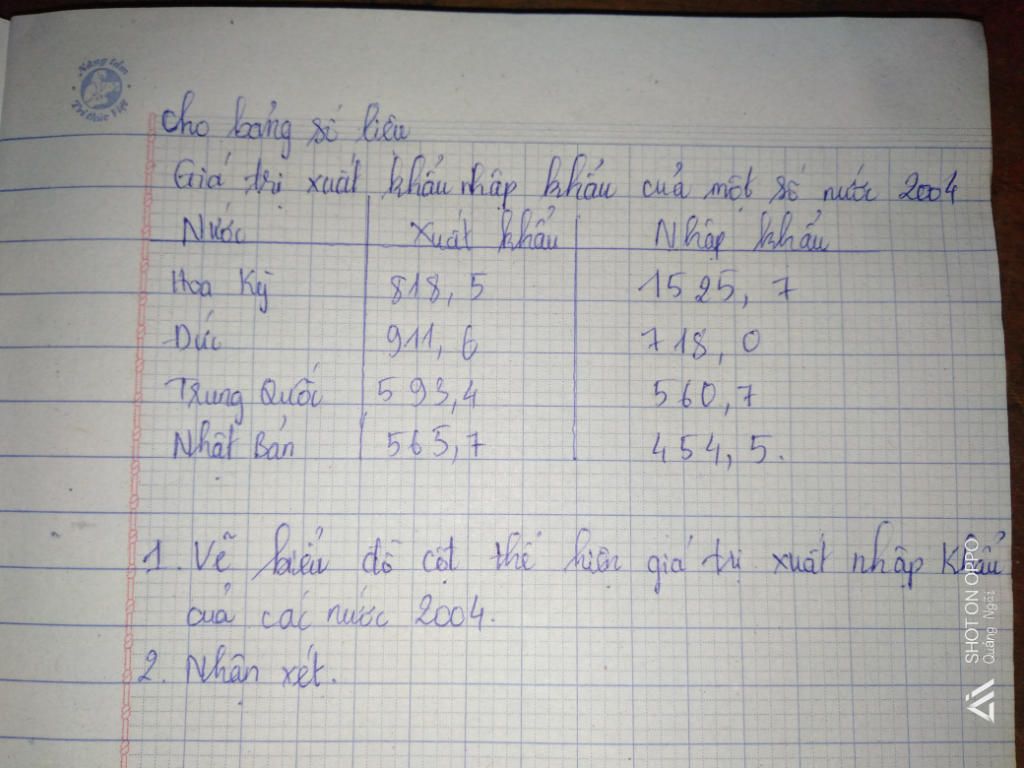 Nâng tầm
Tri thức Việt
Cho bảng số liệu
Giá trị xuất khẩu nhập khẩu của một số nước 2004
Nước Xuất khẩu Nhập khẩu
Hoa Kỳ 818,5 1525,7
Đức 911,6 718,0
Trung Quốc 593,4 560,7
Nhật Bản 565,7 454,5.
1. Vẽ biểu đồ cột thể hiện giá trị xuất nhập khẩu
của các nước 2004.
2. Nhận xét.
SHOT ON OPPO
Quảng Ngãi